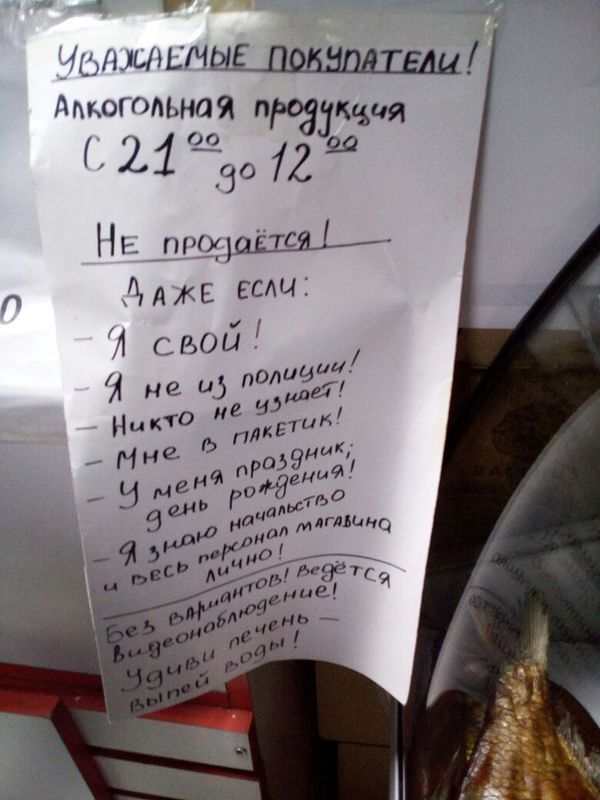 УВАЖАЕМЫЕ ПОКУПАТЕЛИ!
Алкогольная продукция
С 21 00 до 12 00
НЕ продаётся!
ДАЖЕ если:
- Я свой!
- Я не из полиции!
- Никто не узнает!
- Мне в пакетик!
- У меня праздник;
день рождения!
- Я знаю начальство
и весь персонал магазина
лично!
Без вариантов! Ведётся
Видеонаблюдение!
Удиви печень —
выпей воды!